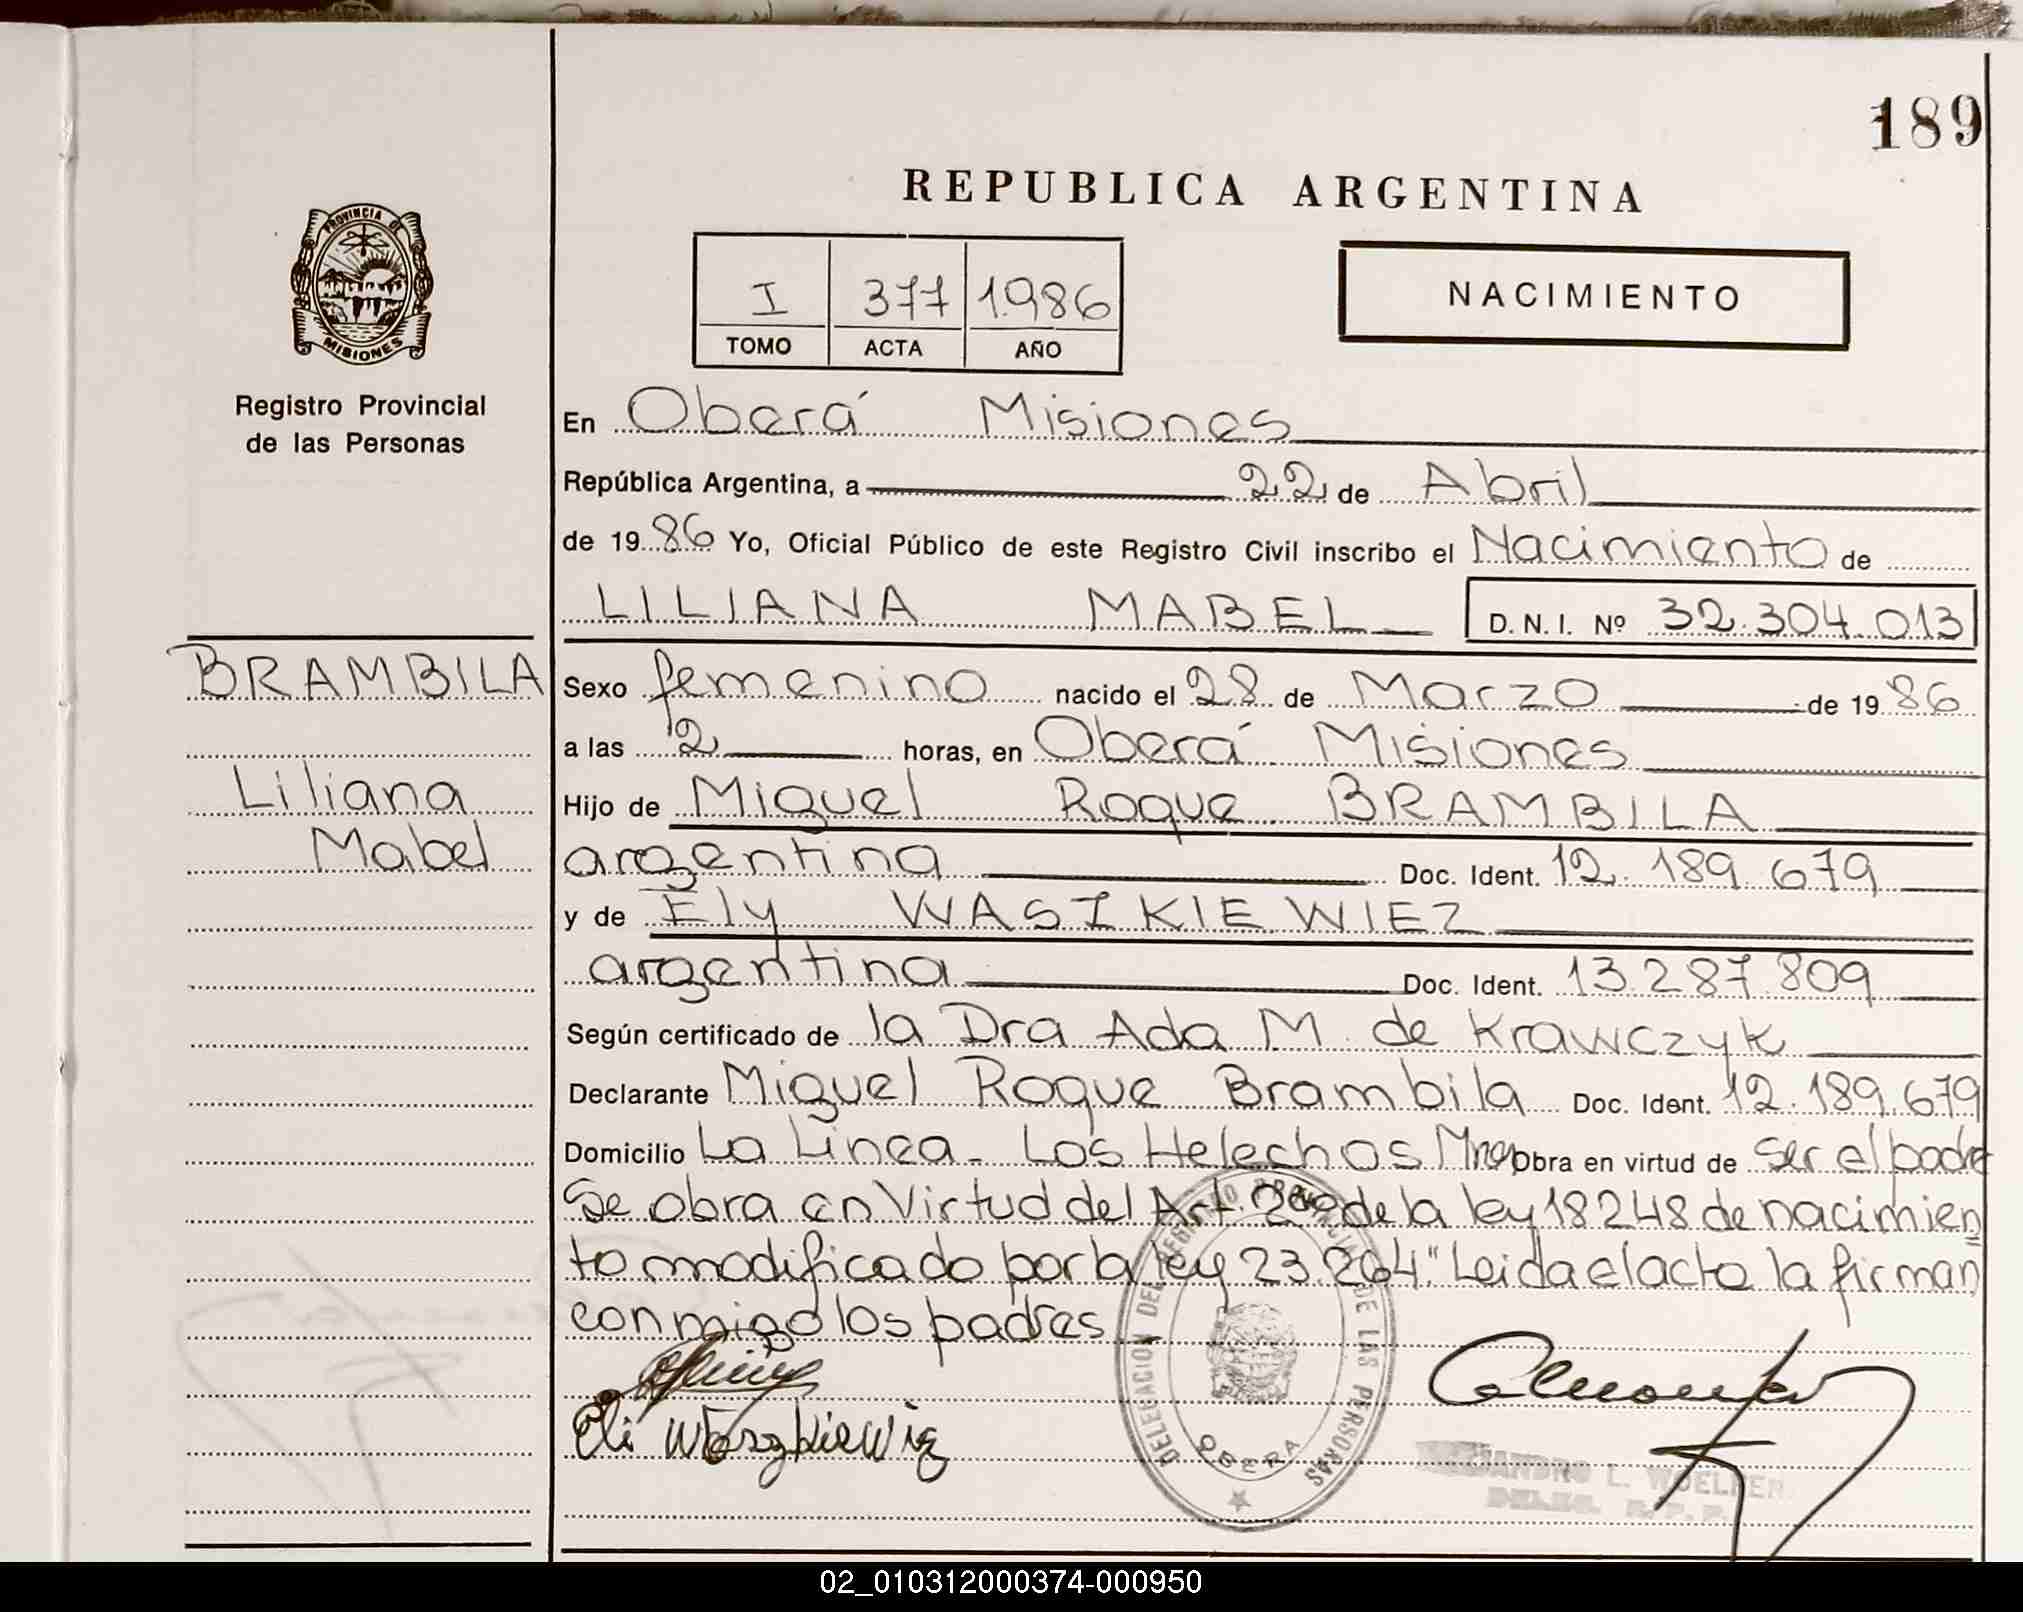 189
REPUBLICA ARGENTINA
PROVINCIA DE
MISIONES
Registro Provincial
de las Personas
I 377 1.986
TOMO ACTA AÑO
NACIMIENTO
En Oberá Misiones
República Argentina, a 22 de Abril
de 19 86 Yo, Oficial Público de este Registro Civil inscribo el Nacimiento de
LILIANA MABEL D. N. I. Nº 32.304.013
BRAMBILA
Liliana
Mabel
Sexo femenino nacido el 28 de Marzo de 19 86
a las 2 horas, en Oberá Misiones
Hijo de Miguel Roque BRAMBILA
argentina Doc. Ident. 12.189.679
y de Ely WASZKIEWIEZ
argentina Doc. Ident. 13.287.809
Según certificado de la Dra Ada M. de Krawczyk
Declarante Miguel Roque Brambila Doc. Ident. 12.189.679
Domicilio La Linea - Los Helechos Mnes Obra en virtud de ser el padre
Se obra en Virtud del Art. de la ley 18248 de nacimien
to modificado por la ley 23.264." Leida el acta la firman
conmigo los padres
Eli Waszkiewiz
DELEGACION DEL REGISTRO PROVINCIAL DE LAS PERSONAS
OBERA
ALEJANDRO L. WOELFER
DELEG. R.P.P.
02_010312000374-000950